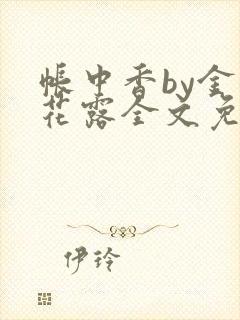 帐中香by金
花露全文免
伊玲